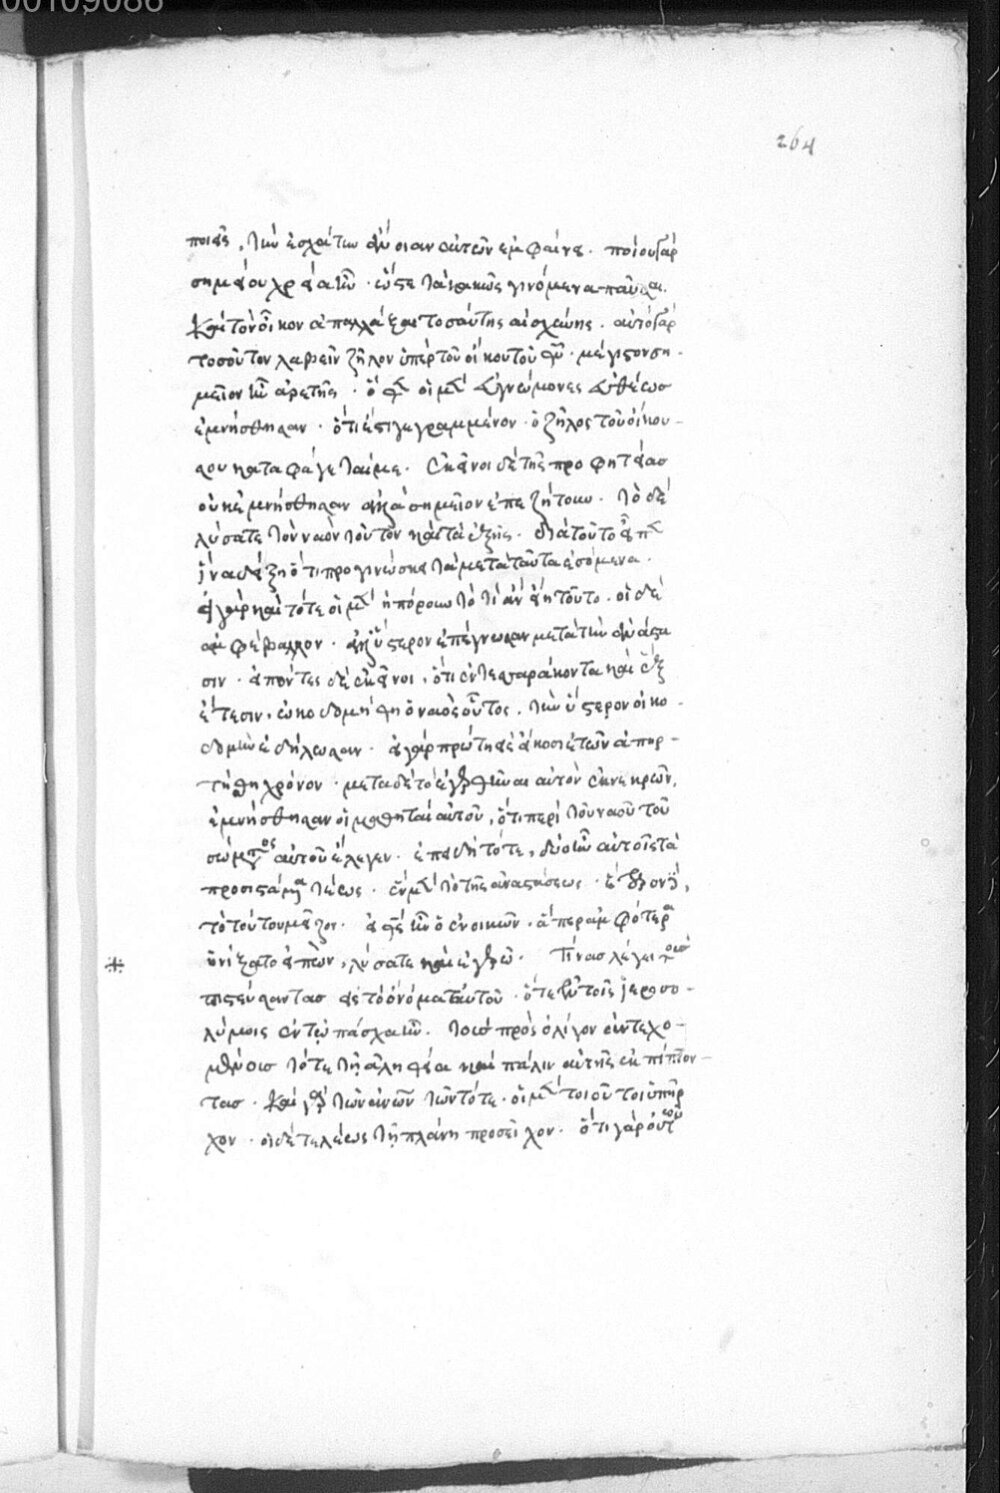 00109086
264
ποιεῖς, τὴν ἐσχάτην ἄνοιαν αὐτῶν ἐμφαίνει. ποίου γὰρ
σημείου χρεία ἦν. ὥστε τὰ κακῶς γινόμενα παῦσαι.
καὶ τὸν οἶκον ἀπαλλάξαι τοσαύτης αἰσχύνης. αὐτὸ γὰρ
τοσοῦτον λαβεῖν ζῆλον ὑπὲρ τοῦ οἴκου τοῦ θῦ. μέγιστον ση-
μεῖον ἦν ἀρετῆς. οἱ μὲν εὐγνώμονες εὐθέως
ἐμνήσθησαν. ὅτι ἐστὶ γεγραμμένον. ὁ ζῆλος τοῦ οἴκου
σου καταφάγεταί με. ἐκεῖνοι δὲ τῆς προφητείας
οὐκ ἐμνήσθησαν ἀλλὰ σημεῖον ἐπεζήτουν. τὸ δὲ
λύσατε τὸν ναὸν τοῦτον καὶ τὰ ἑξῆς. διὰ τοῦτο εἶπεν
ἵνα δείξῃ ὅτι προγινώσκει τὰ μετὰ ταῦτα ἐσόμενα.
εἰ γὰρ καὶ τότε οἱ μὲν ἠπόρουν τὸ τί ἂν εἴη τοῦτο. οἱ δὲ
ἀμφέβαλλον. ἀλλ' ὕστερον ἐπέγνωσαν μετὰ τὴν ἀνάστα
σιν. εἰπόντες δὲ ἐκεῖνοι, ὅτι ἐν τεσσαράκοντα καὶ ἓξ
ἔτεσιν, ὠκοδομήθη ὁ ναὸς οὗτος. τὴν ὕστερον οἰκο-
δομὴν ἐδήλωσαν. ἡ γὰρ πρώτη εἰς εἴκοσι ἐτῶν ἀπηρ-
τήθη χρόνον. μετὰ δὲ τὸ ἐγερθῆναι αὐτὸν ἐκ νεκρῶν,
ἐμνήσθησαν οἱ μαθηταὶ αὐτοῦ, ὅτι περὶ τοῦ ναοῦ τοῦ
σώματος αὐτοῦ ἔλεγεν. ἐπειδὴ τότε, δύο ἦν αὐτοῖς τὰ
προσιστάμενα τέως. ἓν μὲν τὸ τῆς ἀναστάσεως. ἕτερον δὲ,
τὸ τούτου μεῖζον. εἰ θεὸς ἦν ὁ ἐνοικῶν. ἅπερ ἀμφότερα
ᾐνίξατο εἰπὼν, λύσατε καὶ ἐγερῶ. Τίνας λέγει τοὺς
πιστεύσαντας εἰς τὸ ὄνομα αὐτοῦ. ὅτε ἐν τοῖς ἱεροσο-
λύμοις ἐν τῷ πάσχα ἦν. τοὺς πρὸς ὀλίγον ἀντεχο-
μένους τότε τῆς ἀληθείας καὶ πάλιν αὐτῆς ἐκπίπτον-
τας. καὶ γὰρ τῶν αἰνῶν τῶν τότε. οἱ μὲν τοιοῦτοι ὑπῆρ
χον. οἱ δὲ τελέως τῇ πλάνῃ προσεῖχον. ὅτι γὰρ οὗτοι